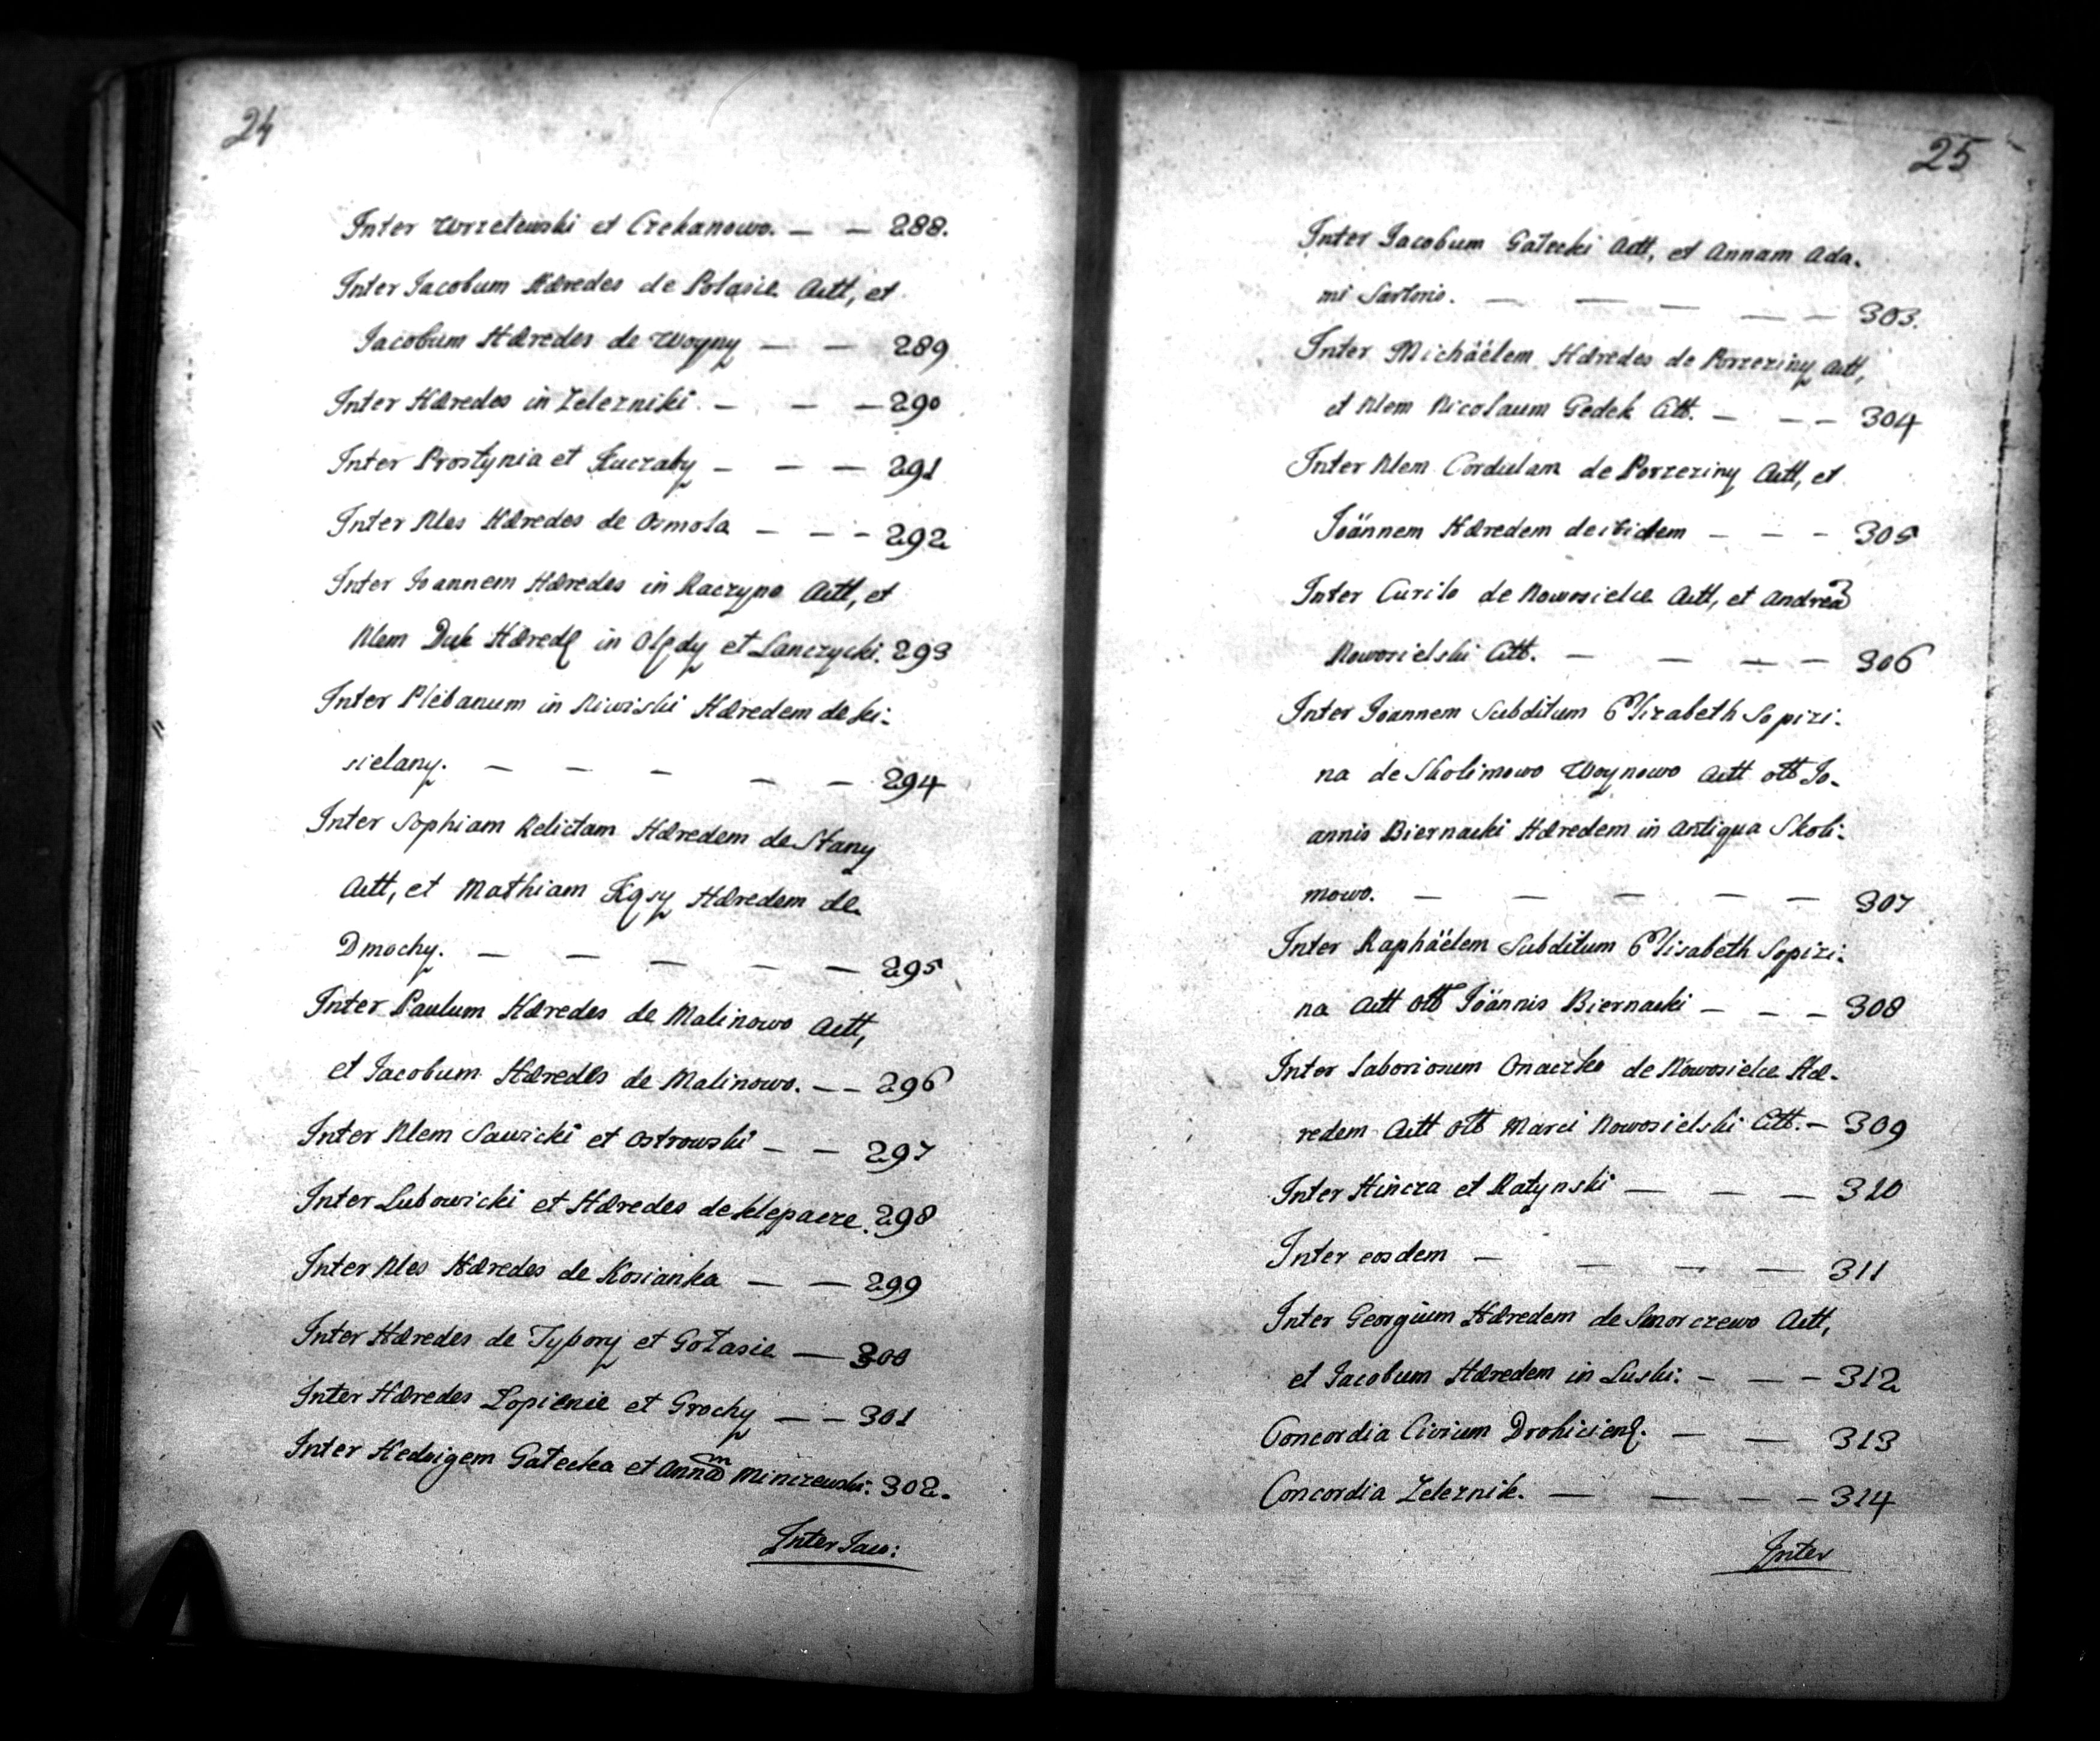 24
Inter Wrzelewski et Czekanowo. — — 288.
Inter Jacobum Hæredes de Polasie Actt, et
Jacobum Hæredes de Woyny — — 289
Inter Hæredes in Zelezniki. — — — 290
Inter Prostynia et Kuczaby — — — 291
Inter Nles Hæredes de Osmola — — — 292
Inter Joannem Hæredes in Raczyno Actt, et
Nlem Duk Hæredę in Olędy et Lanczycki. 293
Inter Plebanum in Niwiski Hæredem de Ki-
sielany. — — — — — 294
Inter Sophiam Relictam Hæredem de Stany
Actt, et Mathiam Kąsy Hæredem de
Dmochy. — — — — — 295
Inter Paulum Hæredes de Malinowo Actt,
et Jacobum Hæredes de Malinowo. — — 296
Inter Nlem Sawicki et Ostrowski — — 297
Inter Lubowicki et Hæredes de Klepacze. 298
Inter Nles Hæredes de Kosianka — — 299
Inter Hæredes de Tybory et Gołasie — 300
Inter Hæredes Łopienie et Grochy — — 301
Inter Hedvigem Gatecka et Annam Minczewski. 302.
Inter Jaco:
25
Inter Jacobum Gatecki Actt, et Annam Ada-
mi Sartoris. — — — — — 303.
Inter Michäëlem Hæredes de Porzeziny Actt,
et Nlem Nicolaum Gedek Citt. — — — 304
Inter Nlem Cordulam de Porzeziny Actt, et
Jöännem Hæredem de ibidem — — — 305
Inter Curilo de Nowosielce Actt, et Andream
Nowosielski Citt. — — — — 306
Inter Joannem Subditum Elizabeth Sopizi-
na de Skolimowo Woynowo Actt ott Jo-
annis Biernacki Hæredem in Antiqua Skoli-
mowo. — — — — — 307
Inter Raphäëlem Subditum Elisabeth Sopizi-
na Actt ott Jöännis Biernacki — — — 308
Inter Laboriosum Onaczko de Nowosielce Hæ-
redem Actt ott Marci Nowosielski Citt. — 309
Inter Hincza et Ratynski — — — 310
Inter eosdem — — — — 311
Inter Georgium Hæredem de Smorczewo Actt,
et Jacobum Hæredem in Luski. — — — 312
Concordia Civium Drohicienę. — — 313
Concordia Zeleznik. — — — — 314
Inter